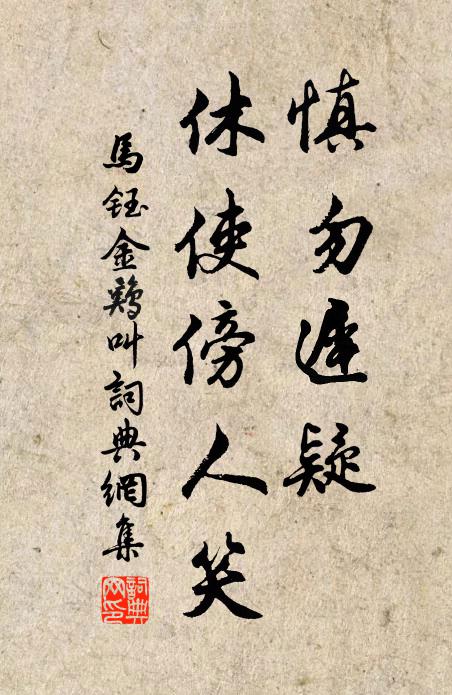 慎勿遲疑
休使傍人笑
馬鈺金鷄叫詞典網集
詞典網印